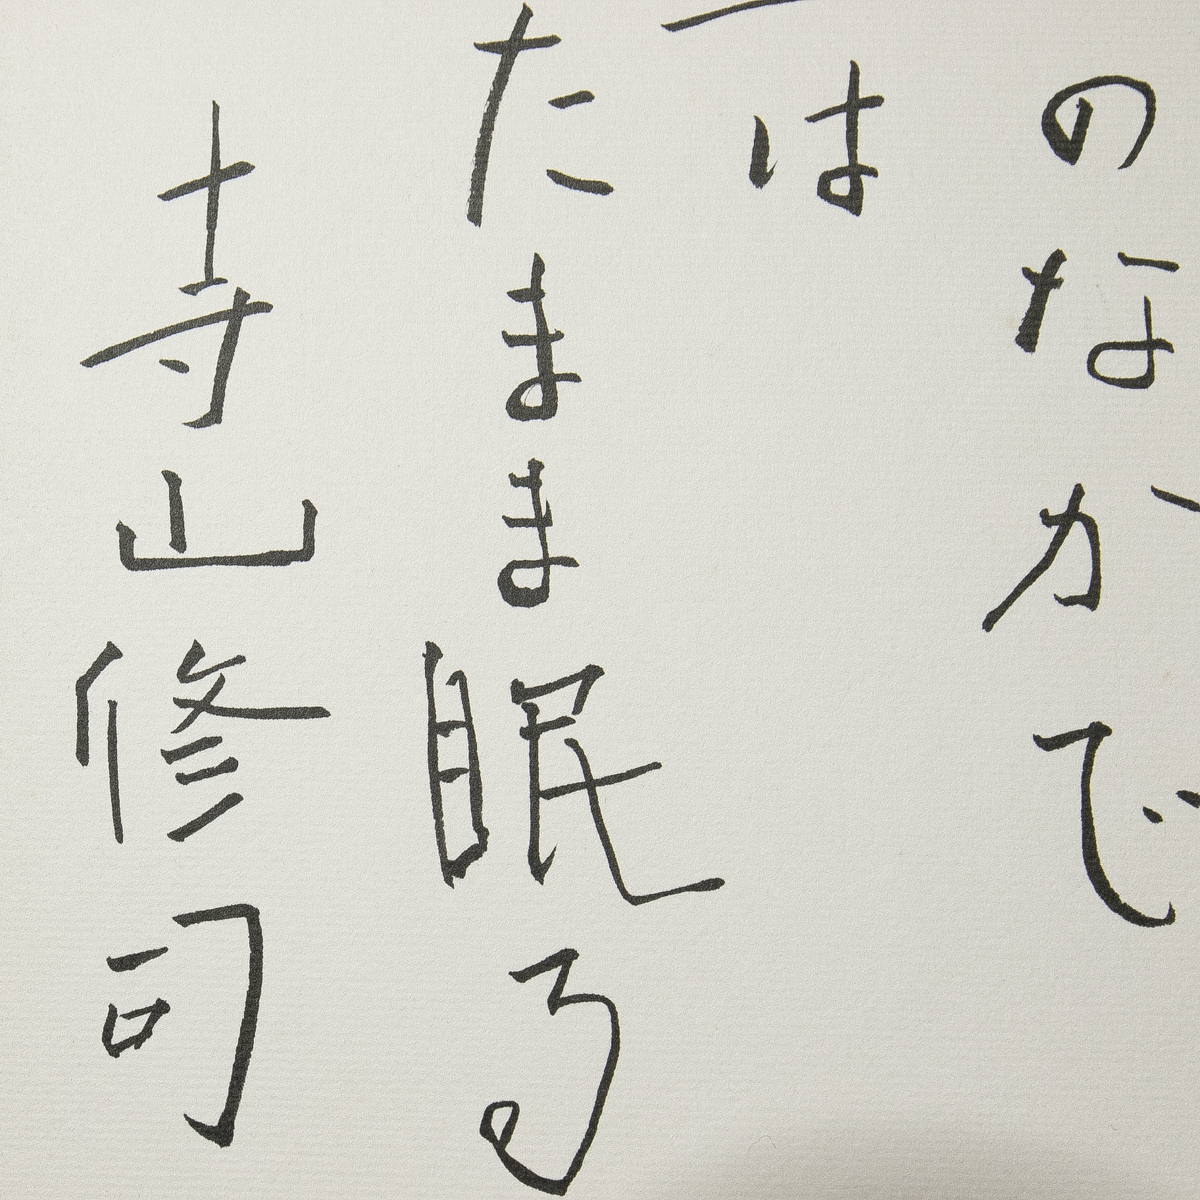 のなかで
は
たまま眠る
寺山修司